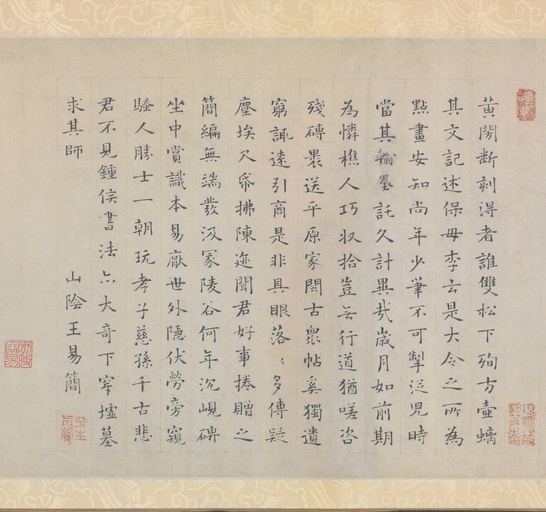 黃閍断刻得者誰雙松下殉方壺螭
其文記述保母李云是大令之所為
點畫安知尚年少筆不可掣從児時
當其翰墨託久計異哉歲月如前期
為憐樵人巧収拾豈無行道猶嗟咨
殘磚裹送平原家閱古衆帖奚獨遺
窮諏遠引商是非具眼落〻多傳疑
塵埃尺帋拂陳迹聞君好事捧贈之
簡編無端發汲冡陵谷何年沉峴碑
坐中賞識本易厭世外隱伏勞旁窺
騷人勝士一朝玩孝子慈孫千古悲
君不見鍾侯書法亦大奇下窂壚墓
求其師
山陰王易簡